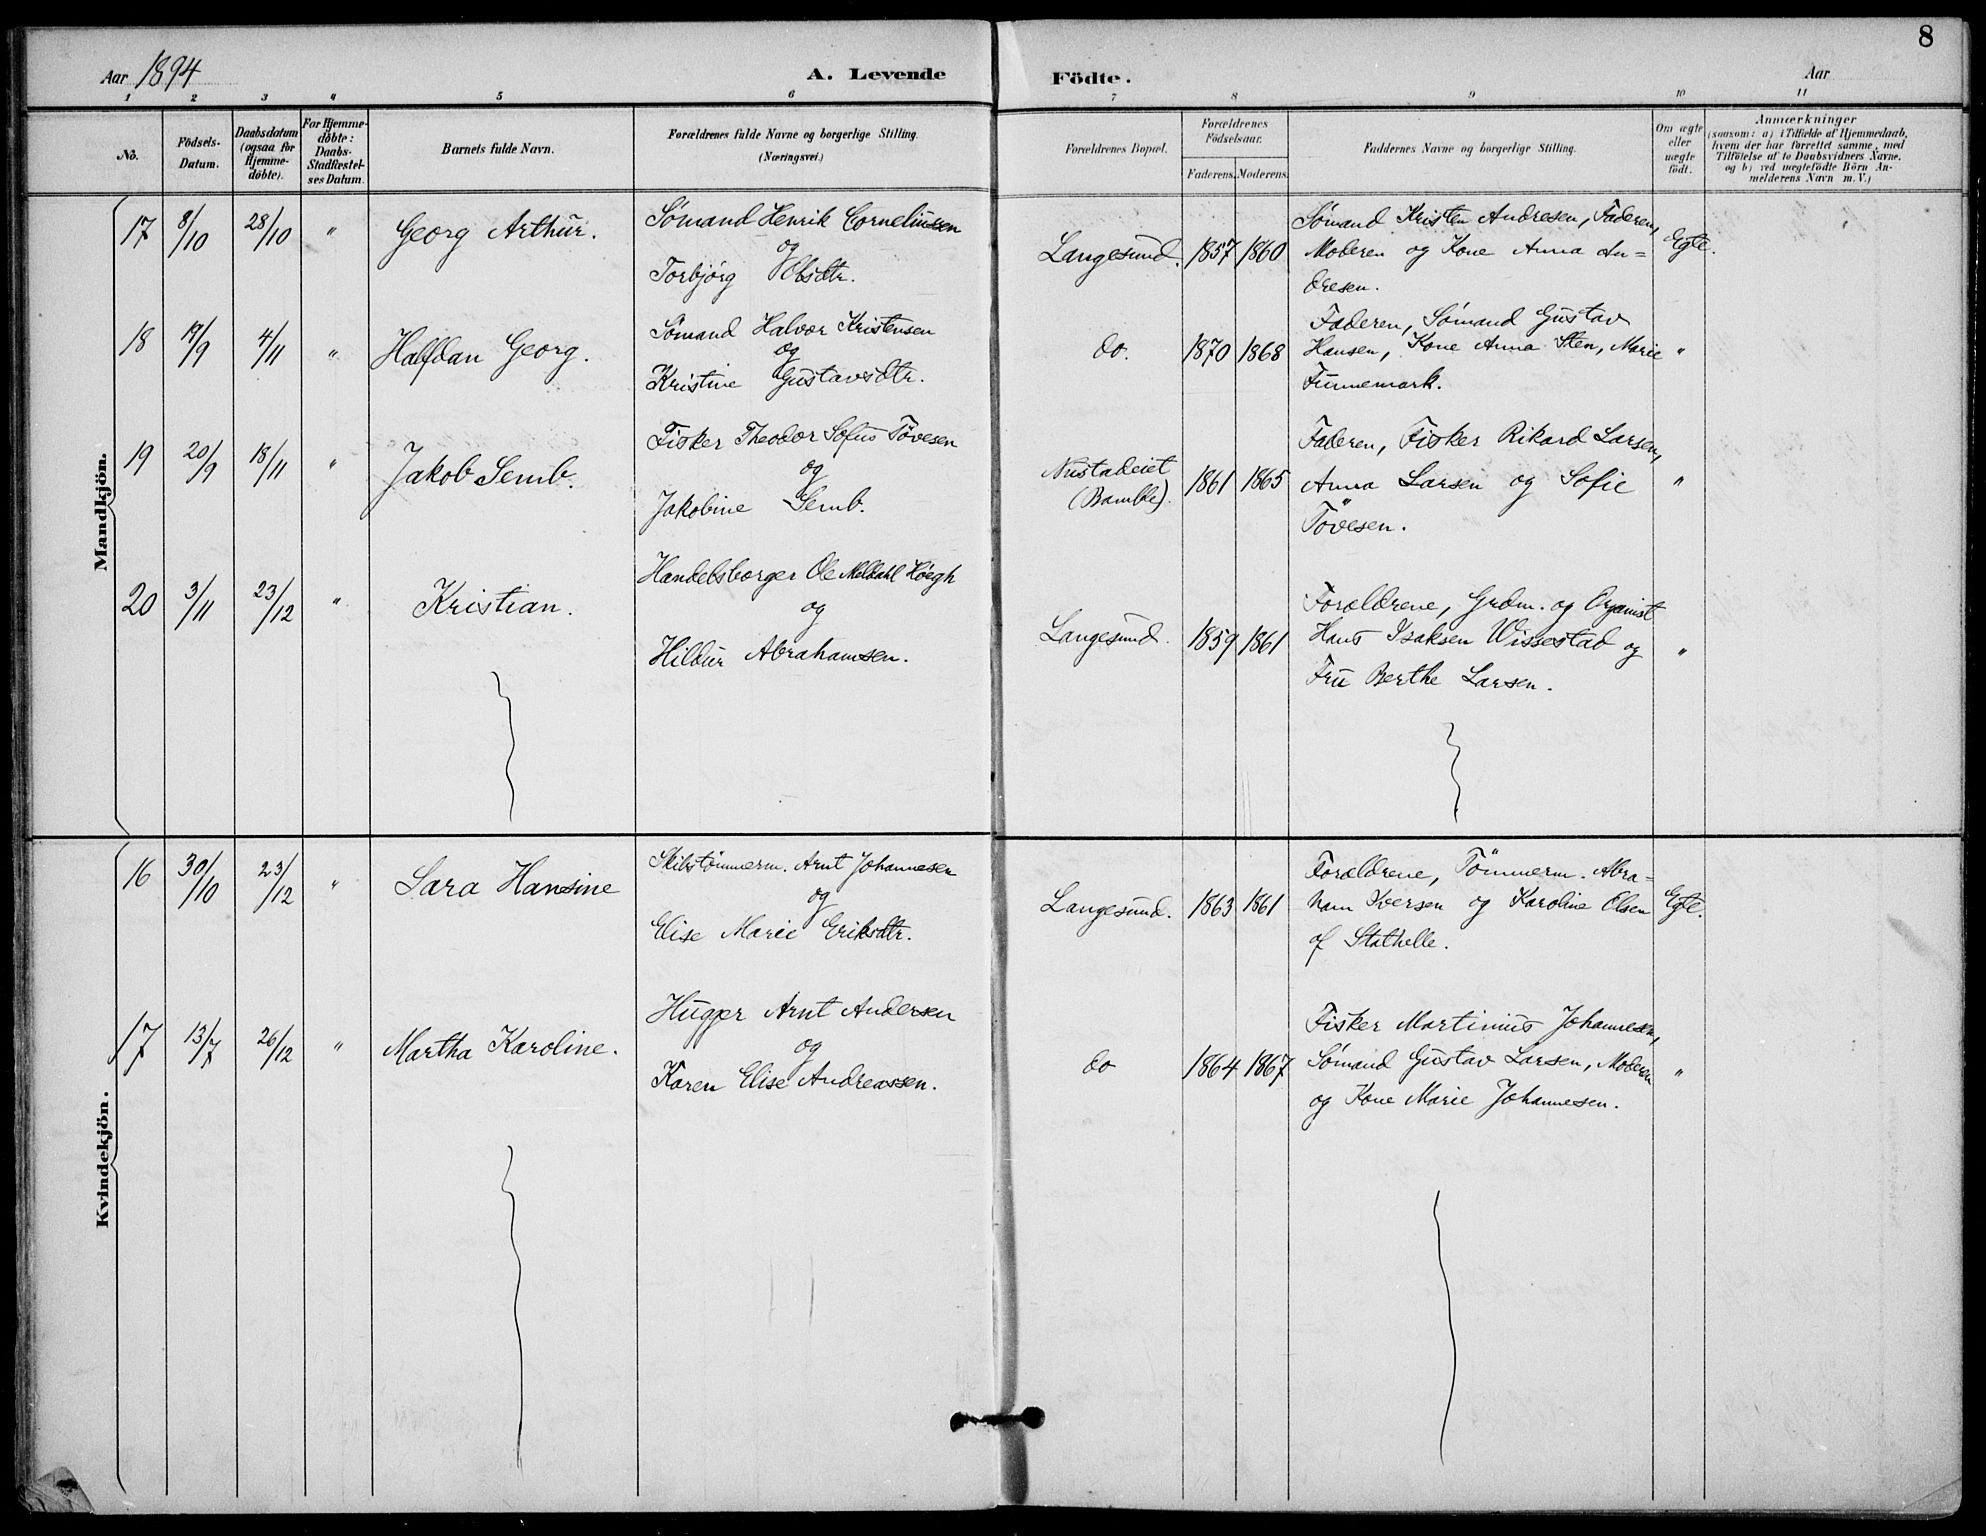 8
Aar 1894
A. Levende Födte.
Aar
1 2 3 4 5 6 7 8 9 10 11
No.
Födsels-
Datum.
Daabsdatum
(ogsaa for
Hjemme-
døbte).
For Hjemme-
døbte:
Daabs-
Stadfæstel-
ses Datum.
Barnets fulde Navn.
Forældrenes fulde Navne og borgerlige Stilling.
(Næringsvei.)
Forældrenes Bopæl.
Forældrenes
Födselsaar.
Faderens. Moderens.
Faddernes Navne og borgerlige Stilling.
Om ægte
eller
uægte
født.
Anmærkninger
(saasom: a) i Tilfælde af Hjemmedaab,
hvem der har forrettet samme, med
Tilföielse af to Daabsvidners Navne,
og b) ved uægtefödte Börn An-
melderens Navn m. V.)
Mandkjön.
17 8/10 28/10 " Georg Arthur.
Sømand Henrik Corneliussen
og
Torbjørg Olsdtr.
Langesund. 1857 1860
Sømand Kristen Andresen, Faderen,
Moderen og Kone Anna An=
dresen.
Egte.
18 17/9 4/11 " Halfdan Georg.
Sømand Halvor Kristensen
og
Kristine Gustavsdtr.
do. 1870 1868
Faderen, Sømand Gustav
Hansen, Kone Anna Sten, Marie
Funnemark.
"
19 20/9 18/11 " Jakob Semb.
Fisker Theodor Sofus Tøvesen
og
Jakobine Semb.
Nustadeiet
(Bamble). 1861 1865
Faderen, Fisker Rikard Larsen,
Anna Larsen og Sofie
Tövesen.
"
20 3/11 23/12 " Kristian.
Handelsborger Ole Meldahl Høegh
og
Hildur Abrahamsen.
Langesund. 1859 1861
Forældrene, Grdm. og Organist
Hans Isaksen Wissestad og
Fru Berthe Larsen.
"
Kvindekjön.
16 30/10 23/12 " Sara Hansine
Skibstømmerm. Arnt Johannesen
og
Elise Marie Eriksdtr.
Langesund. 1863 1861
Forældrene, Tömmerm. Abra=
ham Iversen og Karoline Olsen
af Stathelle.
Egte.
17 13/7 26/12 " Martha Karoline.
Hugger Arnt Andersen
og
Karen Elise Andreassen.
do 1864 1867
Fisker Martinius Johannesen,
Sømand Gustav Larsen, Moderen
og Kone Marie Johannesen.
"